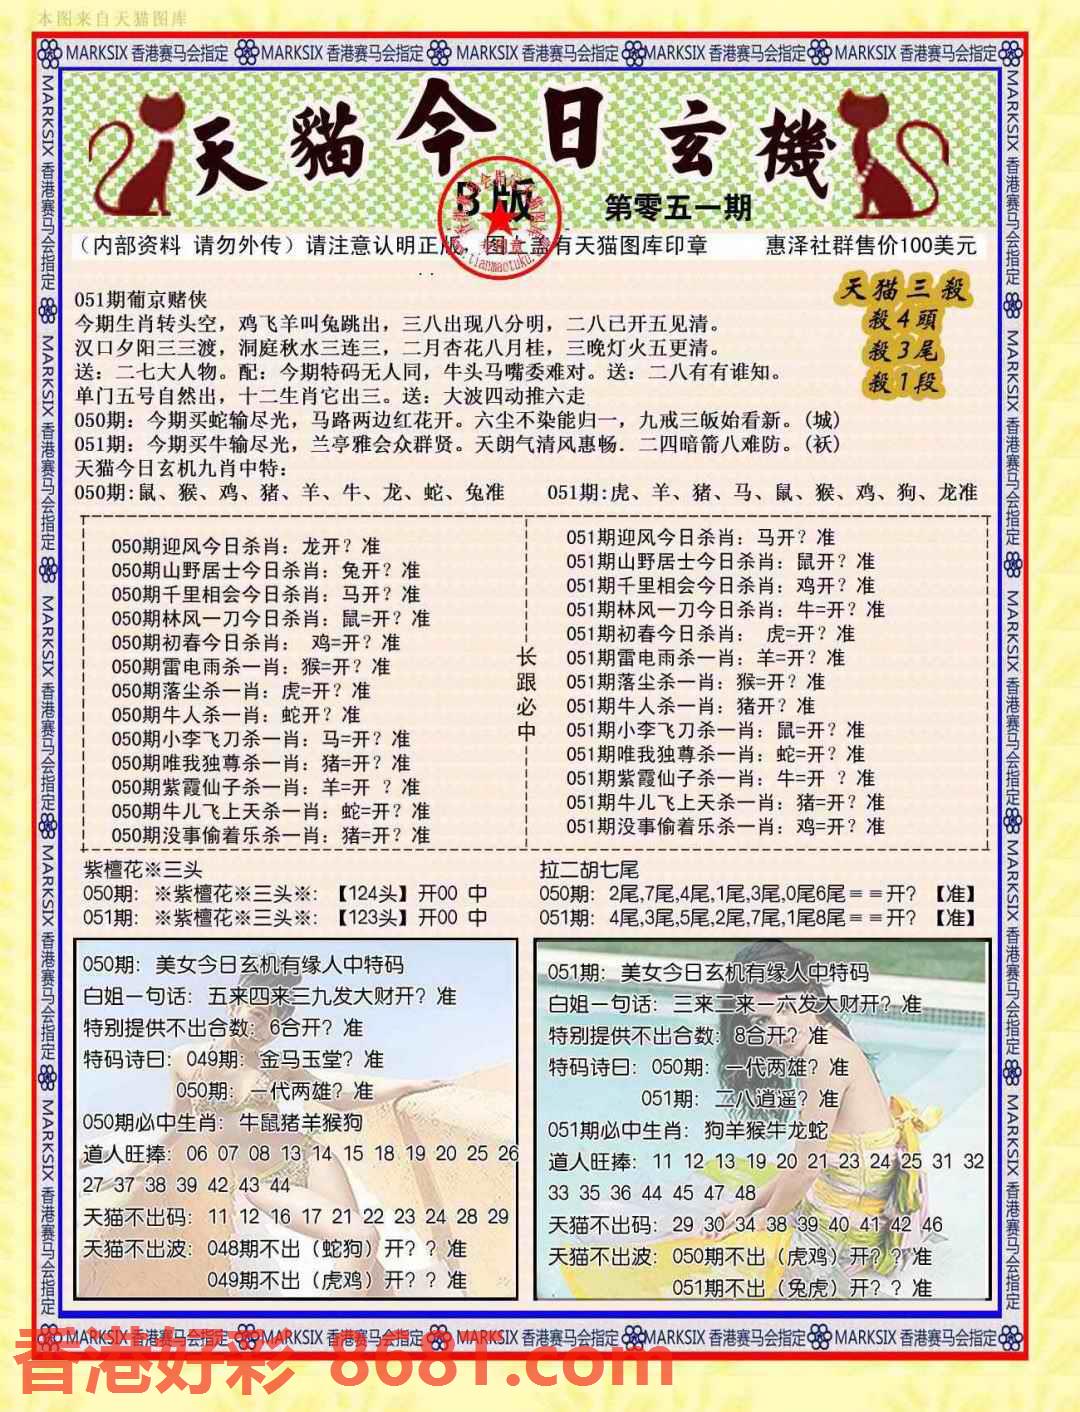 本图来自天猫图库
MARKSIX 香港赛马会指定 MARKSIX 香港赛马会指定 MARKSIX 香港赛马会指定 MARKSIX 香港赛马会指定 MARKSIX 香港赛马会指定
天貓今日玄機
B版
第零五一期
（内部资料 请勿外传）请注意认明正版，图上盖有天猫图库印章 惠泽社群售价100美元
天猫三殺
殺4頭
殺3尾
殺1段
051期葡京赌侠
今期生肖转头空，鸡飞羊叫兔跳出，三八出现八分明，二八已开五见清。
汉口夕阳三三渡，洞庭秋水三连三，二月杏花八月桂，三晚灯火五更清。
送：二七大人物。配：今期特码无人同，牛头马嘴委难对。送：二八有有谁知。
单门五号自然出，十二生肖它出三。送：大波四动推六走
050期：今期买蛇输尽光，马路两边红花开。六尘不染能归一，九戒三皈始看新。(城)
051期：今期买牛输尽光，兰亭雅会众群贤。天朗气清风惠畅．二四暗箭八难防。(袄)
天猫今日玄机九肖中特：
050期:鼠、猴、鸡、猪、羊、牛、龙、蛇、兔准 051期:虎、羊、猪、马、鼠、猴、鸡、狗、龙准
050期迎风今日杀肖：龙开？准
050期山野居士今日杀肖：兔开？准
050期千里相会今日杀肖：马开？准
050期林风一刀今日杀肖：鼠=开？准
050期初春今日杀肖： 鸡=开？准
050期雷电雨杀一肖：猴=开？准
050期落尘杀一肖：虎=开？准
050期牛人杀一肖：蛇开？准
050期小李飞刀杀一肖：马=开？准
050期唯我独尊杀一肖：猪=开？准
050期紫霞仙子杀一肖：羊=开 ？准
050期牛儿飞上天杀一肖：蛇=开？准
050期没事偷着乐杀一肖：猪=开？准
长跟必中
051期迎风今日杀肖：马开？准
051期山野居士今日杀肖：鼠开？准
051期千里相会今日杀肖：鸡开？准
051期林风一刀今日杀肖：牛=开？准
051期初春今日杀肖： 虎=开？准
051期雷电雨杀一肖：羊=开？准
051期落尘杀一肖：猴=开？准
051期牛人杀一肖：猪开？准
051期小李飞刀杀一肖：鼠=开？准
051期唯我独尊杀一肖：蛇=开？准
051期紫霞仙子杀一肖：牛=开 ？准
051期牛儿飞上天杀一肖：猪=开？准
051期没事偷着乐杀一肖：鸡=开？准
紫檀花※三头
050期：※紫檀花※三头※：【124头】开00 中
051期：※紫檀花※三头※：【123头】开00 中
拉二胡七尾
050期：2尾,7尾,4尾,1尾,3尾,0尾6尾＝＝开？【准】
051期：4尾,3尾,5尾,2尾,7尾,1尾8尾＝＝开？【准】
050期：美女今日玄机有缘人中特码
白姐一句话：五来四来三九发大财开？准
特别提供不出合数：6合开？准
特码诗曰：049期：金马玉堂？准
050期：一代两雄？准
050期必中生肖：牛鼠猪羊猴狗
道人旺捧：06 07 08 13 14 15 18 19 20 25 26
27 37 38 39 42 43 44
天猫不出码：11 12 16 17 21 22 23 24 28 29
天猫不出波：048期不出（蛇狗）开？？准
049期不出（虎鸡）开？？准
051期：美女今日玄机有缘人中特码
白姐一句话：三来二来一六发大财开？准
特别提供不出合数：8合开？准
特码诗曰：050期：一代两雄？准
051期：二八逍遥？准
051期必中生肖：狗羊猴牛龙蛇
道人旺捧：11 12 13 19 20 21 23 24 25 31 32
33 35 36 44 45 47 48
天猫不出码：29 30 34 38 39 40 41 42 46
天猫不出波：050期不出（虎鸡）开？？准
051期不出（兔虎）开？？准
MARKSIX 香港赛马会指定 MARKSIX 香港赛马会指定 MARKSIX 香港赛马会指定 MARKSIX 香港赛马会指定 MARKSIX 香港赛马会指定
香港好彩 8681.com